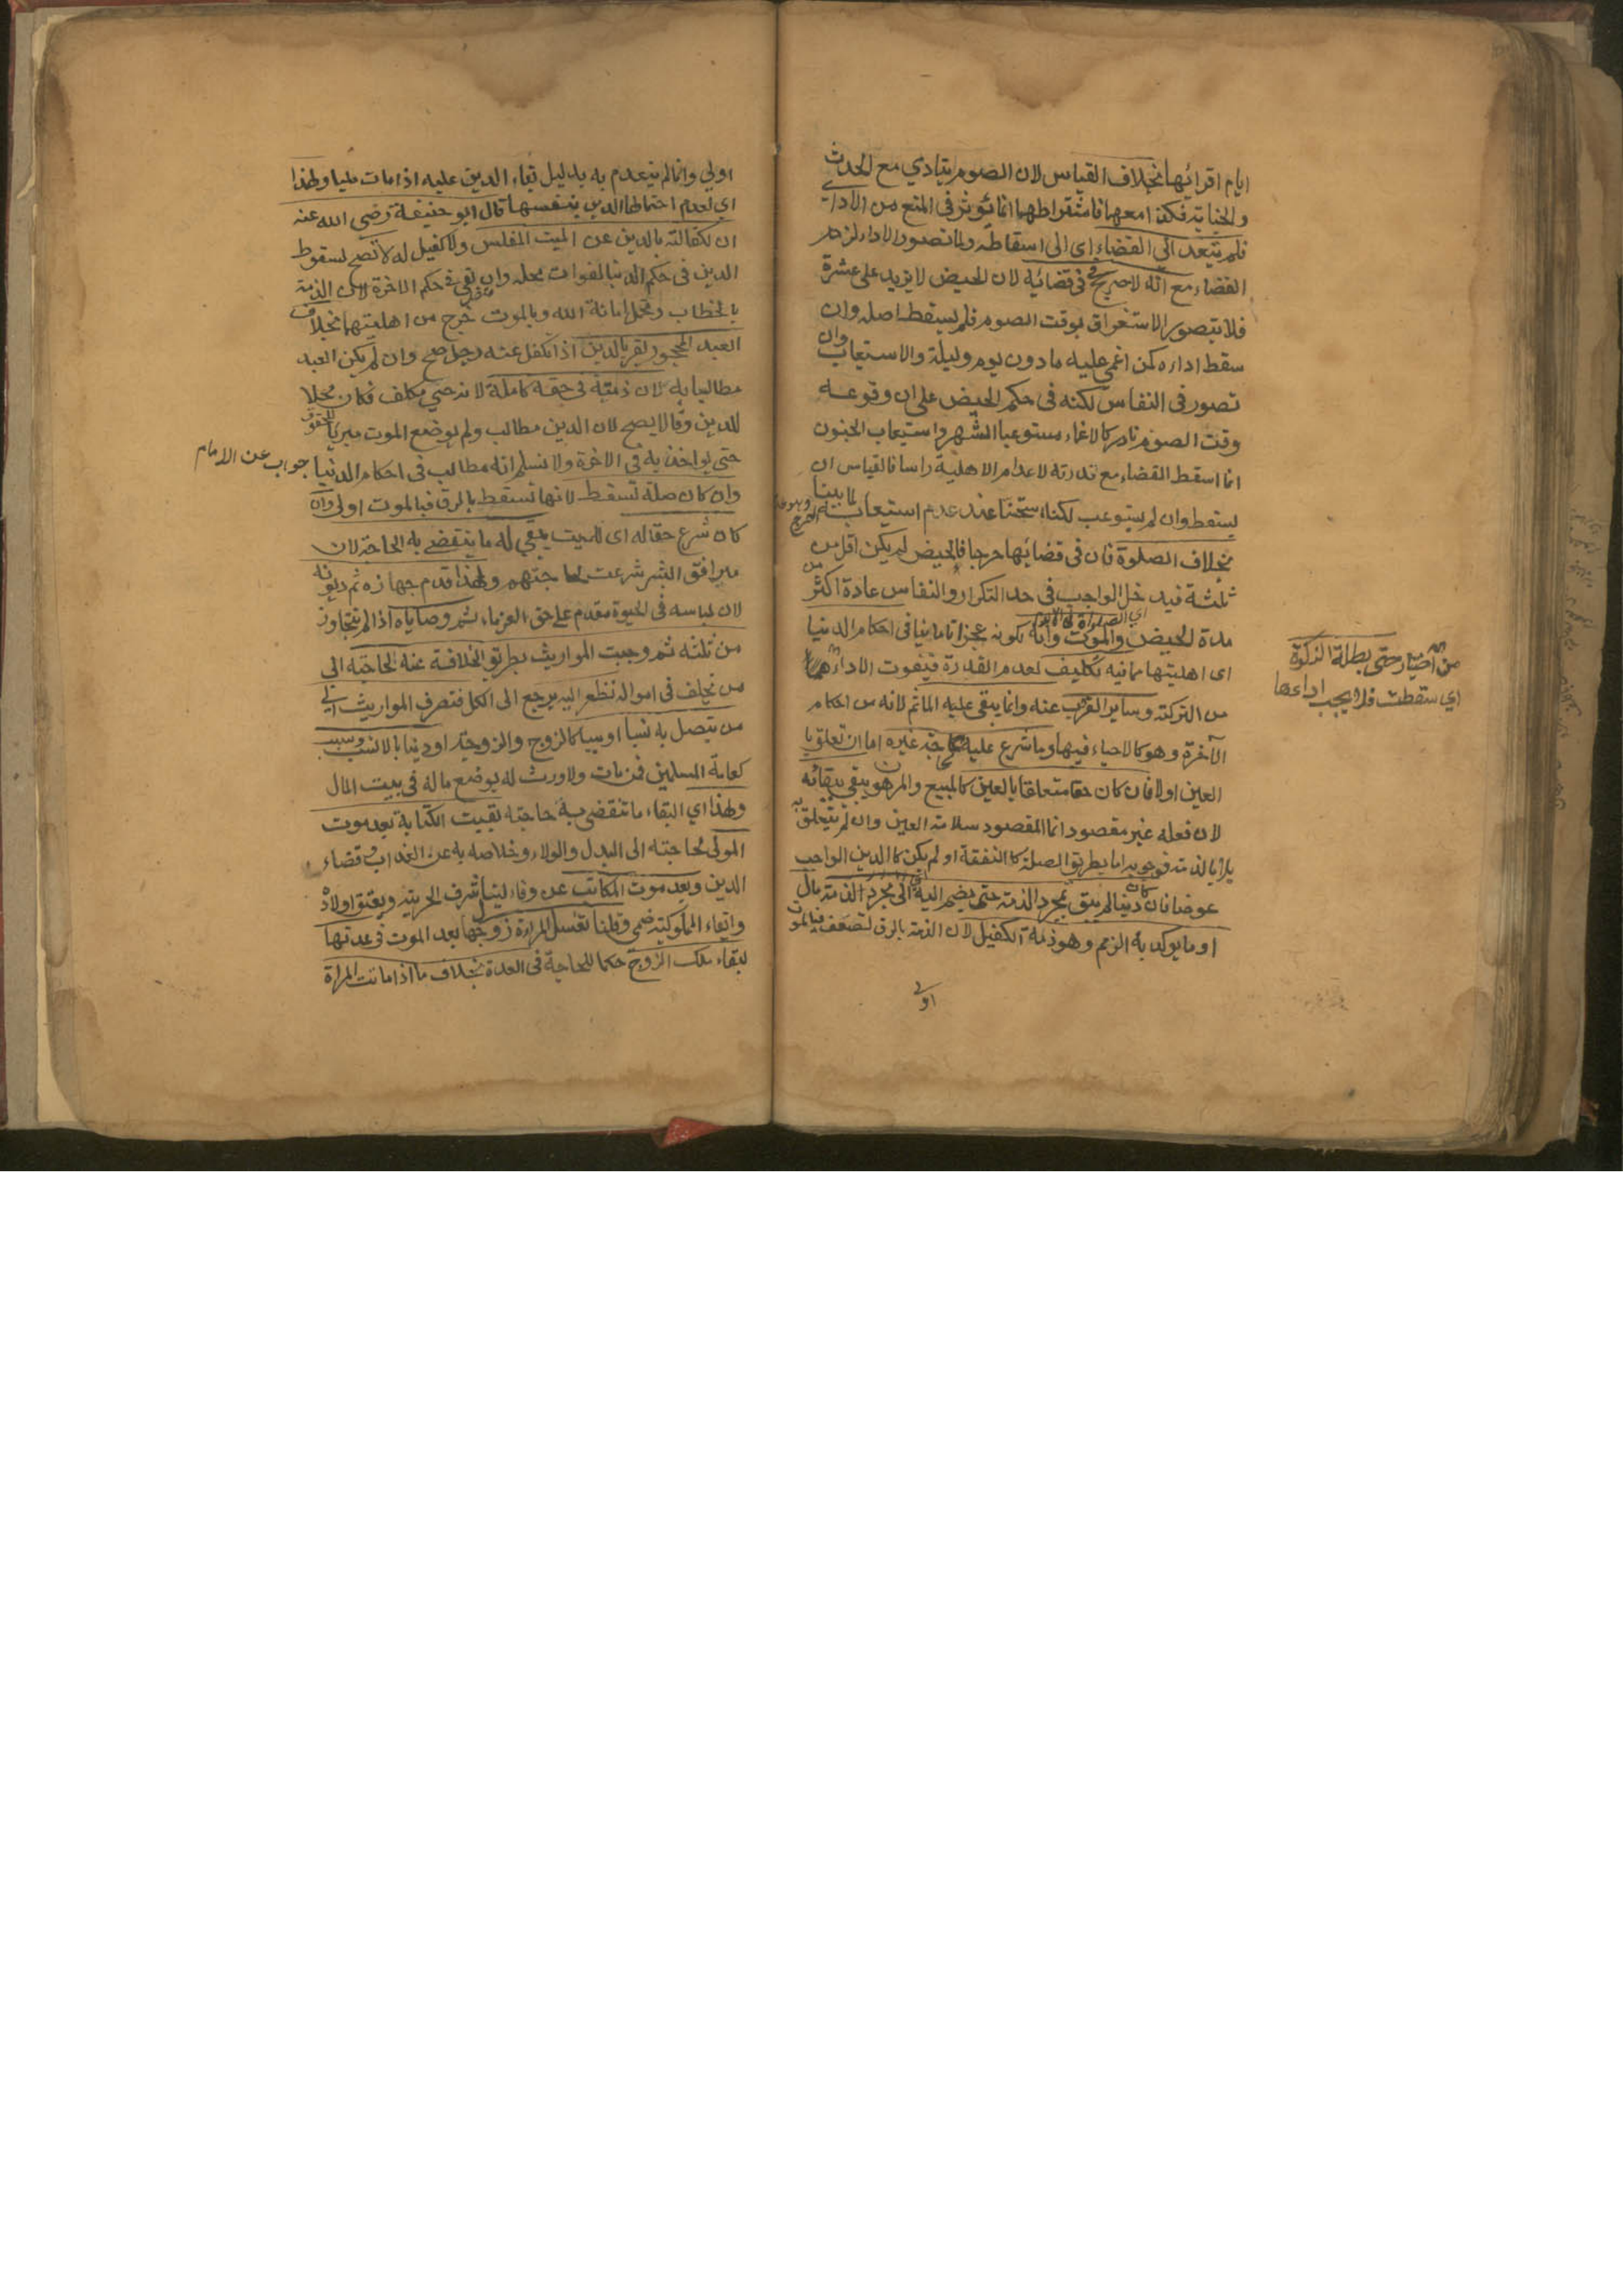 ايام اقرائها بخلاف القياس لان الصوم يتادي مع الحدث
والجنابة فكذا معهما فاشتراطهما انما يؤثر في المنع من الاداء
فلم يتعد الى القضاء اي الى اسقاطه ولما تصور الاداء لزم
القضاء مع انه لا حرج في قضائه لان الحيض لا يزيد على عشرة
فلا يتصور الاستغراق لوقت الصوم فلم يسقط اصله وان
سقط اداءه كمن اغمي عليه ما دون يوم وليلة والاستيعاب وان
تصور في النفاس لكنه في حكم الحيض على ان وقوعه
وقت الصوم نادر كالاغماء مستوعبا الشهر واستيعاب الجنون
انما اسقط القضاء مع ندرته لاعدام الاهلية راسا فالقياس ان
يسقط وان لم يستوعب لكنا استحسنا عند عدم استيعابه لما بينا
بخلاف الصلوة فان في قضائها حرجا فالحيض لم يكن اقل من
ثلثة فيدخل الواجب في حد التكرار والنفاس عادة اكثر من
مدة الحيض والموت وانه لكونه عجزا تاما ينافي احكام الدنيا
اى اهليتها مما فيه تكليف لعدم القدرة فيفوت الاداء
من الزكوة وساير القرب عنه وانما يبقى عليه الماثم لانه من احكام
الآخرة وهو كالاحياء فيها وما شرع عليه لحاجة غيره اما ان تعلق با
العين اولا فان كان حقا متعلقا بالعين كالمبيع والمرهون يبقى ببقائه
لان فعله غير مقصود انما المقصود سلامة العين وان لم يتعلق به
بل بالذمة فوجوبه اما بطريق الصلة كالنفقة او لم يكن كالدين الواجب
عوضا فان كان دينا لم يبق بمجرد الذمة حتى يضم اليه اي الى مجرد الذمة مال
او ما يوكد به الذمم وهو ذمة الكفيل لان الذمة بالرق تضعف فبالموت
اولى
من الصيام حتى بطلة الزكوة
اي سقطت فلا يجب اداءها
اولي وانما لم ينعدم به بدليل بقاء الدين عليه اذا مات مليا ولهذا
اي لعدم احتمالها الدين بنفسها قال ابو حنيفة رضى الله عنه
ان الكفالة بالدين عن الميت المفلس ولا كفيل له لا تصح لسقوط
الدين في حكم الدنيا لفوات محله وان بقي في حكم الاخرة لان الذمة
بالخطاب وتحمل امانة الله وبالموت خرج من اهليتهما بخلاف
العبد المحجور يقر بالدين اذا تكفل عنه رجل صح وان لم يكن العبد
مطالبا به لان ذمته في حقه كاملة لانه حي مكلف فكان محلا
للدين وقالا يصح لان الدين مطالب ولم يوضع الموت مبريا للحقوق
حتى يواخذ به في الاخرة ولا نسلم انه مطالب في احكام الدنيا
جواب عن الامام
وان كان صلة تسقط لانها تسقط بالرق فبالموت اولى وان
كان شرع حقا له اى للميت يبقي له ما ينقضي به الحاجة لان
مرافق البشر شرعت لحاجتهم ولهذا قدم جهازه ثم ديونه
لان لباسه في الحيوة مقدم على حق الغرماء ثم وصاياه اذا لم تتجاوز
من ثلثه ثم وجبت المواريث بطريق الخلافة عنه لحاجته الى
من يخلف في امواله نظرا اليه يرجع الى الكل فتصرف المواريث الى
من يتصل به نسبا او سببا كالزوج والزوجة او دينا بلا نسب وسبب
كعامة المسلمين فمن مات ولا وارث له يوضع ماله في بيت المال
ولهذا اي البقاء ما تنقضي به حاجته بقيت الكتابة بعد موت
المولى لحاجته الى البدل والولاء وخلاصه به عن العذاب قضاء
الدين وبعد موت المكاتب عن وفاء لينال شرف الحرية ويعتق اولاده
وابقاء المملوكية ضمني وقلنا تغسل المراة زوجها بعد الموت في عدتها
لبقاء ملك الزوج حكما للحاجة في العدة بخلاف ما اذا ماتت المراة